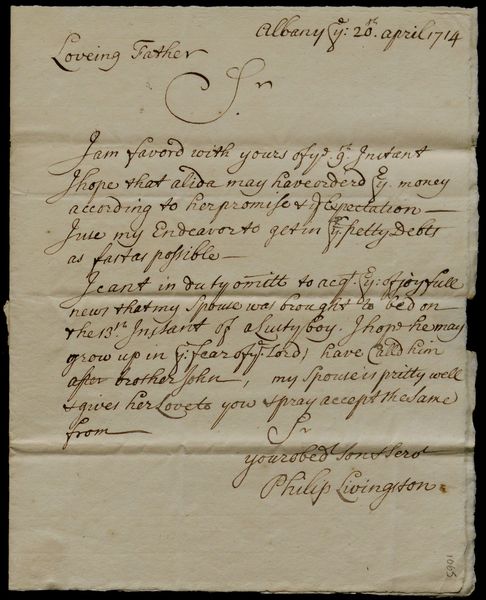 Albany ye: 20th. april 1714
Loveing Father
Sr
I am favord with yours of ye. 9th. Instant
I hope that alida may have orderd ye. money
according to her promise & Expectation —
I use my Endeavor to get in ye petty Debts
as fast as possible —
I cant in duty omitt to acqt. ye: of joyfull
news that my Spouse was brought to bed on
the 13th Instant of a Lusty boy. I hope he may
grow up in ye: fear of ye: Lord, have Calld him
after brother John, my Spouse is pritty well
& gives her Love to you & pray accept the same
from
Sr
your obedt Son & Servt
Philip Livingston
1065